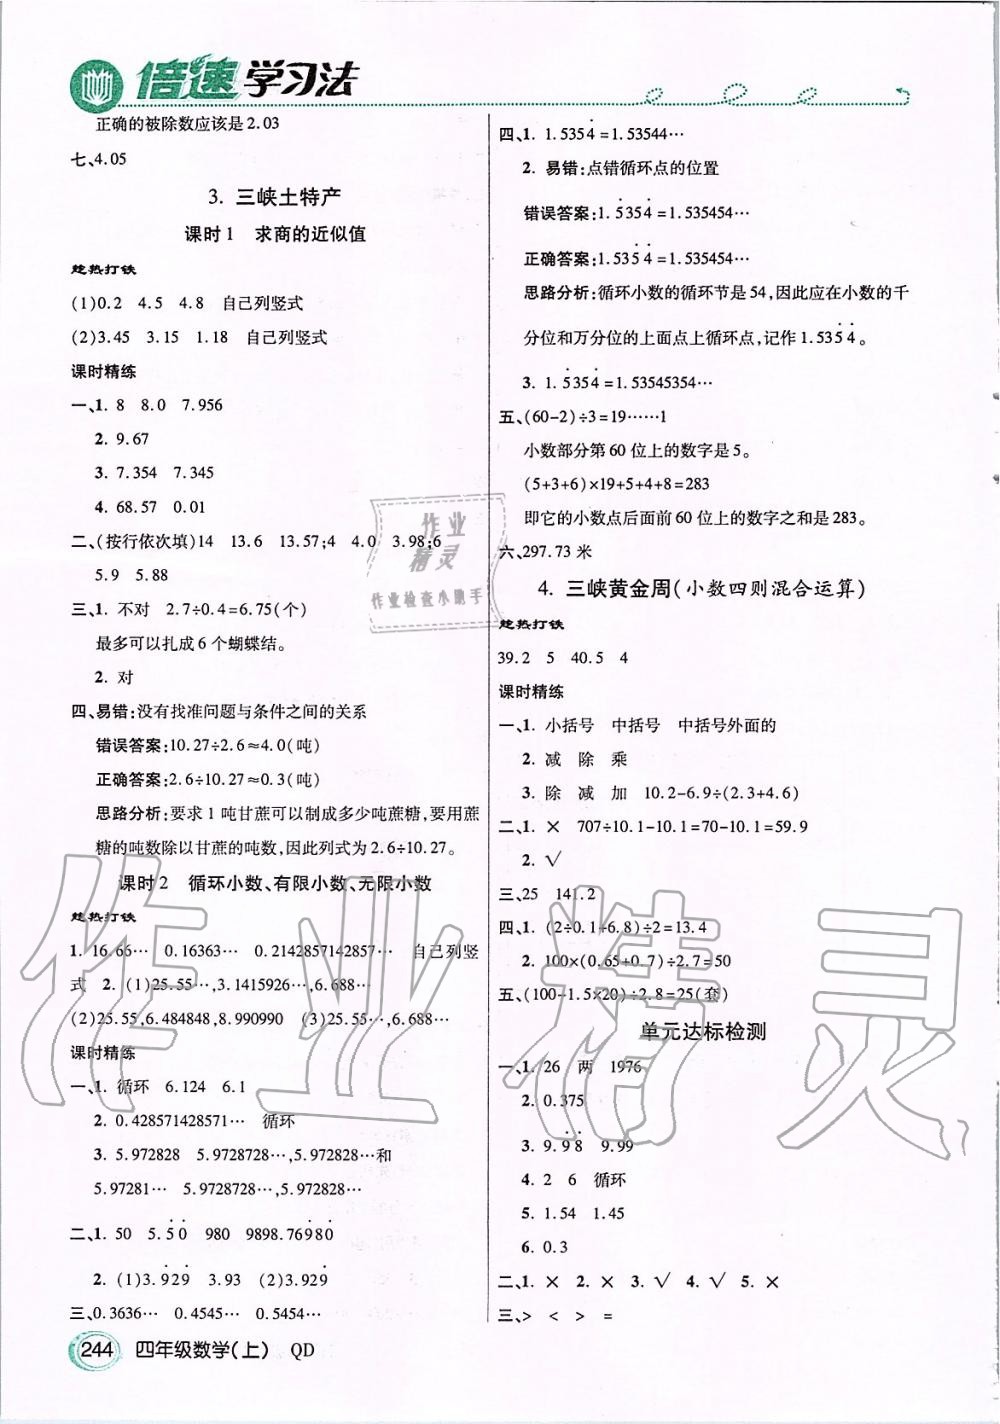 倍速学习法
正确的被除数应该是2.03
七、4.05
3. 三峡土特产
课时1 求商的近似值
趁热打铁
(1)0.2 4.5 4.8 自己列竖式
(2)3.45 3.15 1.18 自己列竖式
课时精练
一、1. 8 8.0 7.956
2. 9.67
3. 7.354 7.345
4. 68.57 0.01
二、(按行依次填)14 13.6 13.57;4 4.0 3.98;6
5.9 5.88
三、1. 不对 2.7÷0.4=6.75(个)
最多可以扎成6个蝴蝶结。
2. 对
四、易错:没有找准问题与条件之间的关系
错误答案:10.27÷2.6≈4.0(吨)
正确答案:2.6÷10.27≈0.3(吨)
思路分析:要求1吨甘蔗可以制成多少吨蔗糖,要用蔗
糖的吨数除以甘蔗的吨数,因此列式为2.6÷10.27。
课时2 循环小数、有限小数、无限小数
趁热打铁
1. 16.66… 0.16363… 0.2142857142857… 自己列竖
式 2. (1)25.55…,3.1415926…,6.688…
(2)25.55,6.484848,8.990990 (3)25.55…,6.688…
课时精练
一、1. 循环 6.124 6.1
2. 0.428571428571… 循环
3. 5.972828 5.9728728…,5.972828…和
5.97281… 5.9728728…,5.972828…
二、1. 50 5.5̇0̇ 980 9898.769̇8̇0̇
2. (1)3.9̇29̇ 3.93 (2)3.929̇
三、0.3636… 0.4545… 0.5454…
244 四年级数学(上) QD
四、1. 1.5354̇=1.53544…
2. 易错:点错循环点的位置
错误答案:1.5̇354̇=1.535454…
正确答案:1.535̇4̇=1.535454…
思路分析:循环小数的循环节是54,因此应在小数的千
分位和万分位的上面点上循环点,记作1.535̇4̇。
3. 1.5̇354̇=1.53545354…
五、(60-2)÷3=19……1
小数部分第60位上的数字是5。
(5+3+6)×19+5+4+8=283
即它的小数点后面前60位上的数字之和是283。
六、297.73米
4. 三峡黄金周(小数四则混合运算)
趁热打铁
39.2 5 40.5 4
课时精练
一、1. 小括号 中括号 中括号外面的
2. 减 除 乘
3. 除 减 加 10.2-6.9÷(2.3+4.6)
二、1. × 707÷10.1-10.1=70-10.1=59.9
2. √
三、25 141.2
四、1. (2÷0.1+6.8)÷2=13.4
2. 100×(0.65+0.7)÷2.7=50
五、(100-1.5×20)÷2.8=25(套)
单元达标检测
一、1. 26 两 1976
2. 0.375
3. 9.9̇8̇ 9.99
4. 2 6 循环
5. 1.54 1.45
6. 0.3
二、1. × 2. × 3. √ 4. √ 5. ×
三、> < > =
作业
精灵
作业检查小助手
作业精灵